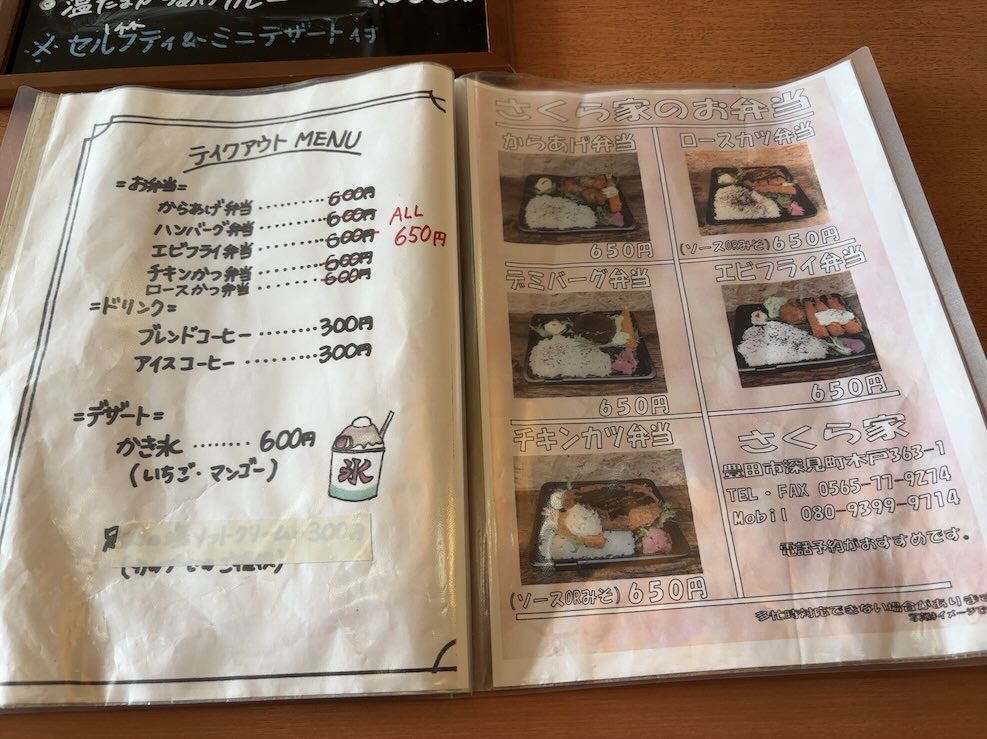 温たま
※セルフティ&ミニデザート付
テイクアウト MENU
=お弁当=
からあげ弁当 ·········· 600円
ハンバーグ弁当 ········· 600円
エビフライ弁当 ········· 600円
チキンかつ弁当 ········· 600円
ロースかつ弁当 ········· 600円
ALL
650円
=ドリンク=
ブレンドコーヒー ········ 300円
アイスコーヒー ·········· 300円
=デザート=
かき氷 ········ 600円
(いちご・マンゴー)
氷
300円
さくら家のお弁当
からあげ弁当
650円
ロースカツ弁当
(ソースORみそ) 650円
デミバーグ弁当
650円
エビフライ弁当
650円
チキンカツ弁当
(ソースORみそ) 650円
さくら家
豊田市深見町木戸363-1
TEL・FAX 0565-77-9274
Mobil 080-9399-9714
電話予約がおすすめです。
多忙時対応できない場合があります
写真はイメージで